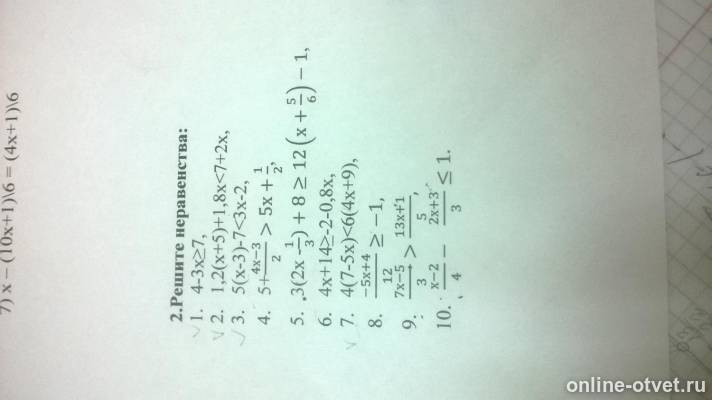 7) x – (10x+1)\6 = (4x+1)\6
2.Решите неравенства:
1. 4-3x≥7,
2. 1,2(x+5)+1,8x<7+2x,
3. 5(x-3)-7<3x-2,
4. 5+\frac{4x-3}{2} > 5x + \frac{1}{2},
5. 3(2x - \frac{1}{3}) + 8 ≥ 12(x + \frac{5}{6}) - 1,
6. 4x+14≥-2-0,8x,
7. 4(7-5x)<6(4x+9),
8. \frac{-5x+4}{12} ≥ -1,
9. \frac{7x-5}{3} > \frac{13x+1}{5},
10. \frac{x-2}{4} - \frac{2x+3}{3} ≤ 1.
online-otvet.ru